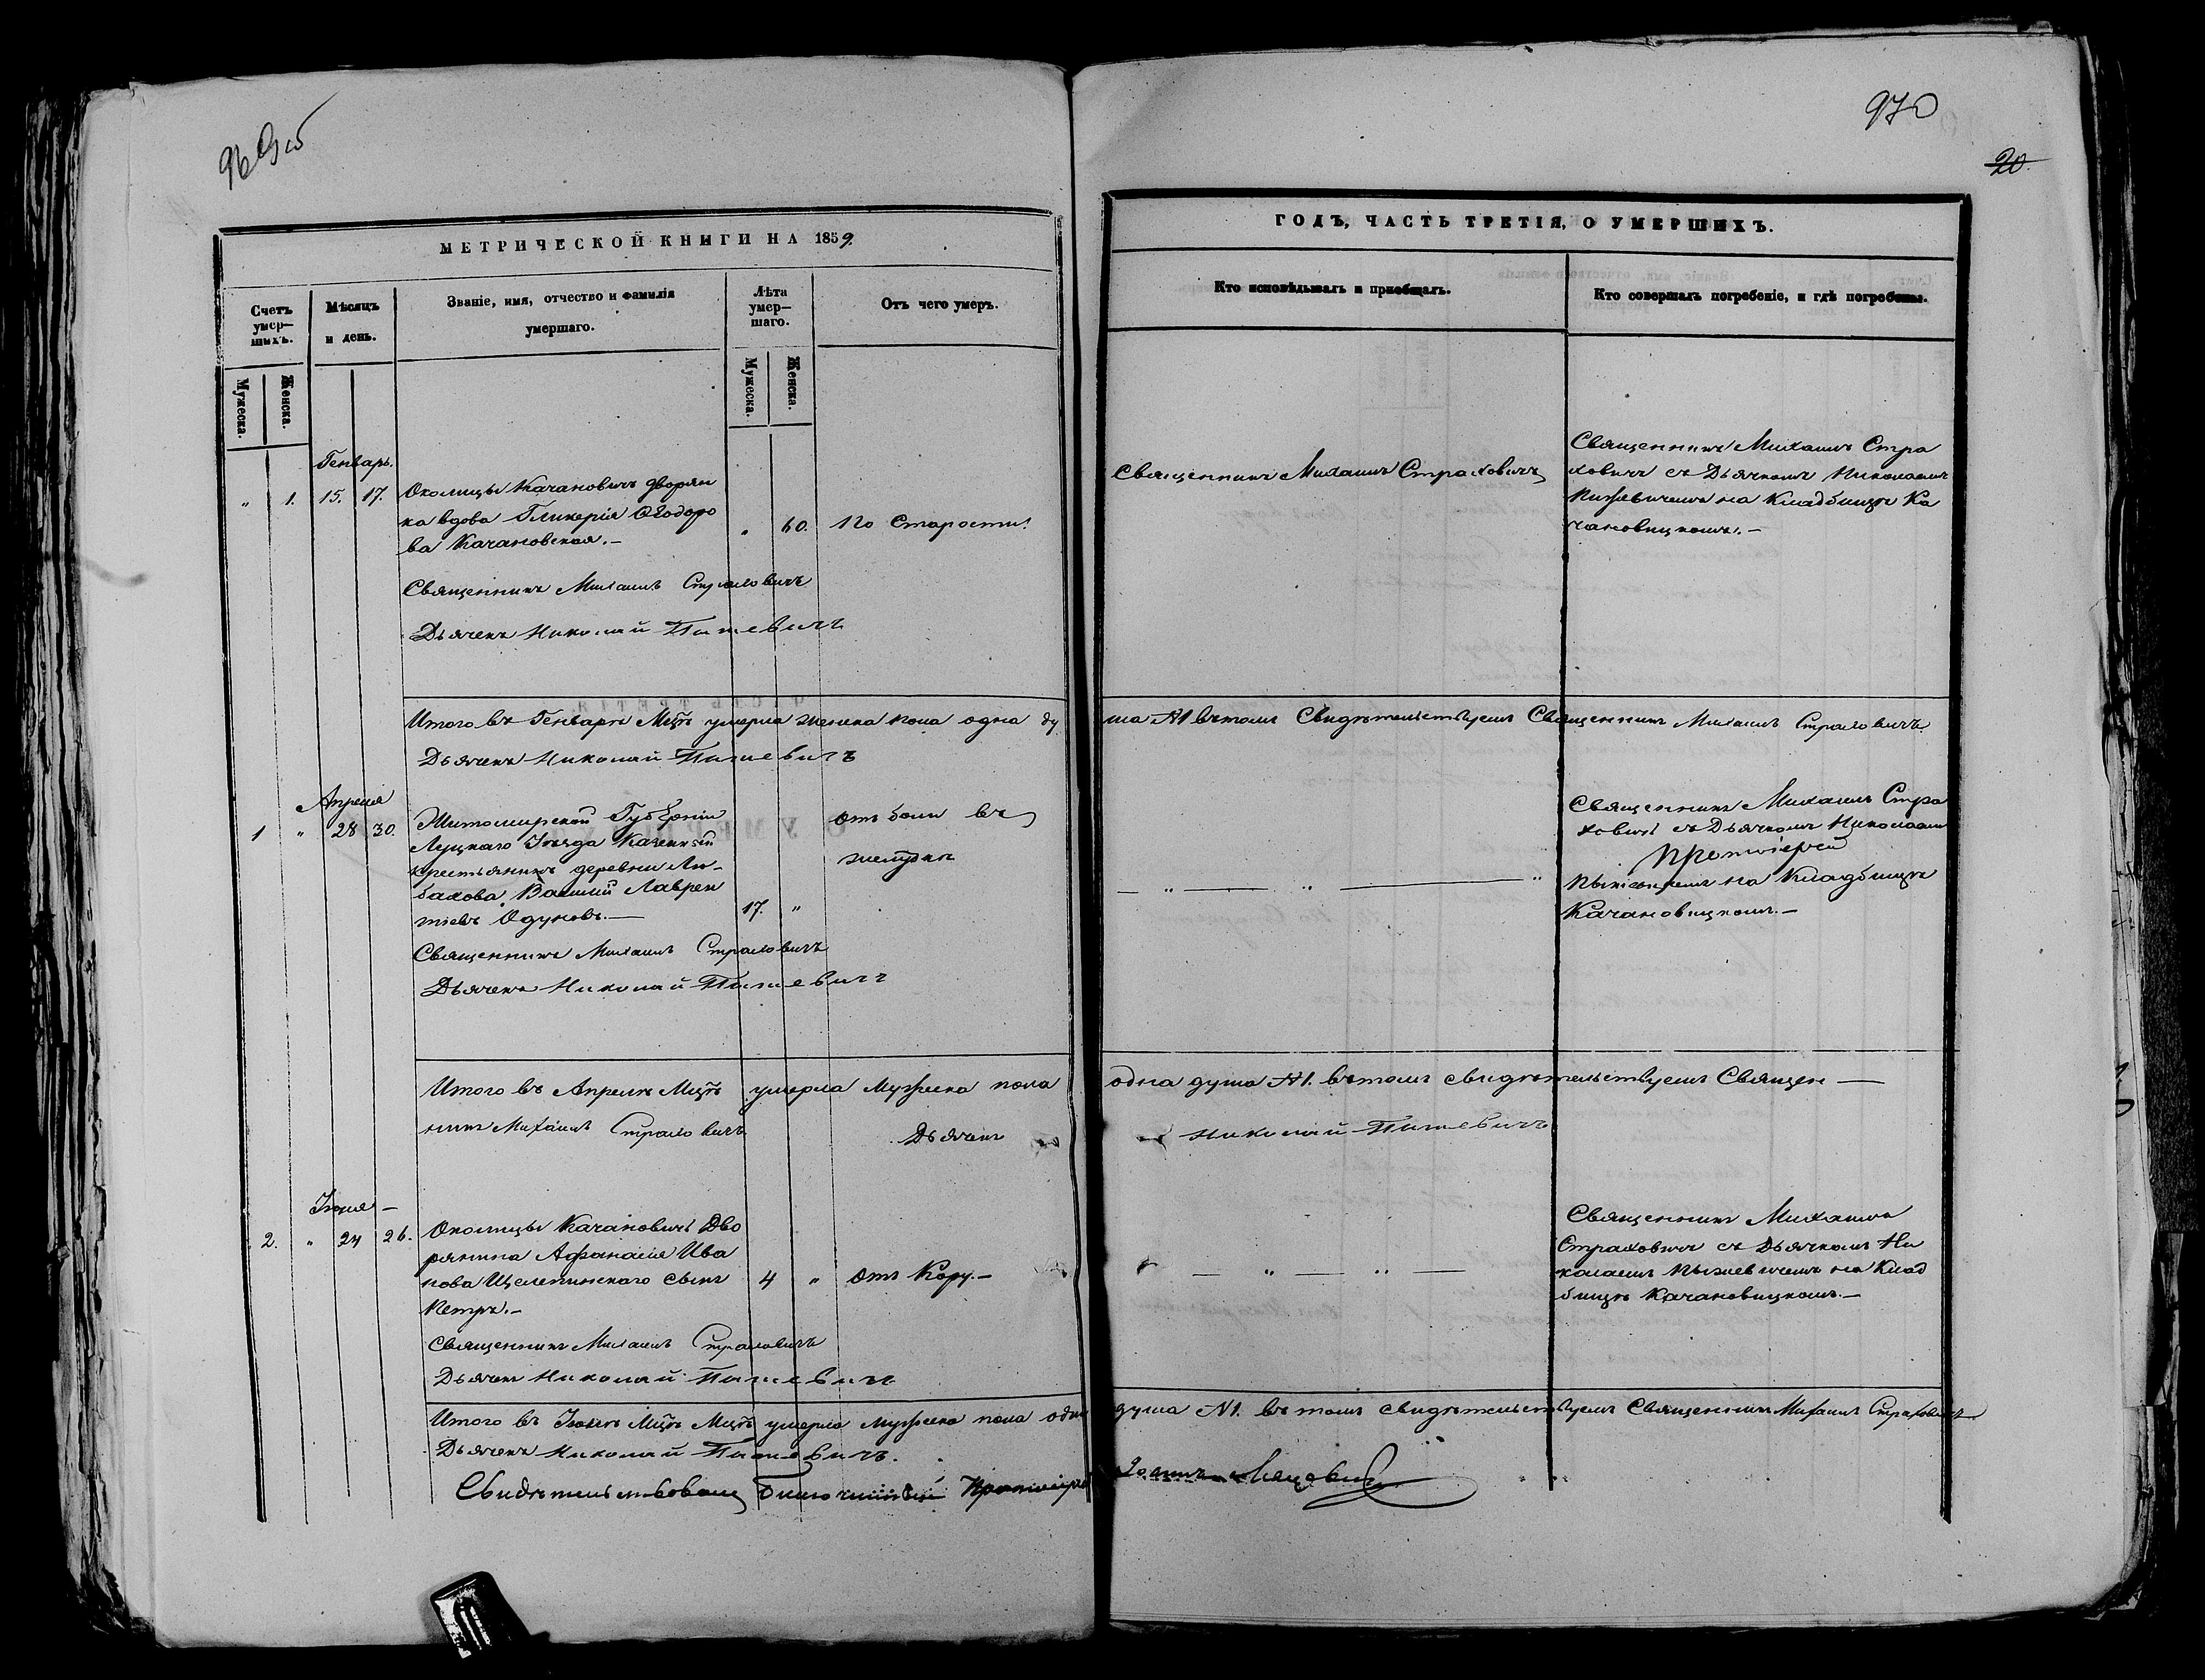 969 об
970
20.
МЕТРИЧЕСКОЙ КНИГИ НА 1859.
ГОДЪ, ЧАСТЬ ТРЕТІЯ, О УМЕРШИХЪ.
Счетъ умер—шихъ.
Мѣсяцъ и день.
Званіе, имя, отчество и фамилія умершаго.
Лѣта умер—шаго.
Отъ чего умеръ.
Кто исповѣдывалъ и пріобщалъ.
Кто совершалъ погребеніе, и гдѣ погребены.
Мужеска.
Женска.
Мужеска.
Женска.
Генварь.
„ 1. 15. 17.
Околицы Качановичъ дворян
ка вдова Гликерія Ѳеодоро
ва Качановская.—
„ 60.
По Старости.
Священникъ Михаилъ Страховичъ
Дьячекъ Николай Пыжевичъ
Священникъ Михаилъ Страховичъ
Священникъ Михаилъ Стра
ховичъ съ Дьячкомъ Николаемъ
Пыжевичемъ на Кладбищѣ Ка
чановицкомъ.—
Итого въ Генварѣ Мцѣ умерла женска пола одна ду
ша №1 въ томъ Свидѣтельствуемъ Священникъ Михаилъ Страховичъ
Дьячекъ Николай Пыжевичъ
Апреля
1 „ 28 30.
Житомирской Губерніи
Луцкаго Уѣзда Казенный
крестьянинъ деревни Лю-
бахова Василій Лаврен
тіевъ Одуновъ.—
17. „
отъ боли въ
желудкѣ
Священникъ Михаилъ Страховичъ
Дьячекъ Николай Пыжевичъ
— „ — „ — „
Священникъ Михаилъ Стра
ховичъ съ Дьячкомъ Николаемъ
на Кладбищѣ
Качановицкомъ.—
Итого въ Апрелѣ Мцѣ умерла Мужеска пола
одна душа №1. въ томъ свидѣтельствуемъ Священ—
никъ Михаилъ Страховичъ
Дьячекъ Николай Пыжевичъ
Іюня—
2. „ 24 26.
Околицы Качановичъ Дво
рянина Афанасія Ива
нова Щелепинскаго сынъ
Петръ.—
4 „
Отъ Кору.—
Священникъ Михаилъ Страховичъ
Дьячекъ Николай Пыжевичъ
„ — „ — „ —
Священникъ Михаилъ
Страховичъ съ Дьячкомъ Ни
колаемъ Пыжевичемъ на Клад
бищѣ Качановицкомъ.—
Итого въ Іюнѣ Мцѣ Мцѣ умерла мужеска пола одна
душа №1. въ томъ свидѣтельствуемъ Священникъ Михаилъ Страховичъ
Дьячекъ Николай Пыжевичъ.
Свидѣтельствовалъ Благочинный Протоіерей